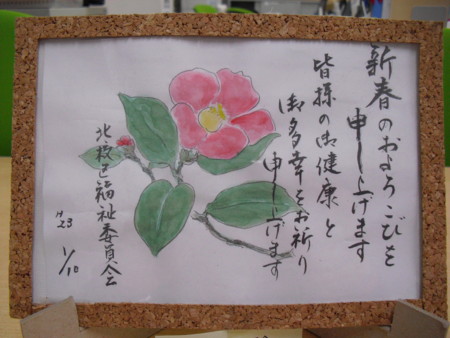 新春のおよろこびを
申し上げます
皆様の御健康と
御多幸をお祈り
申し上げます
北校区福祉委員会
H23 1/10